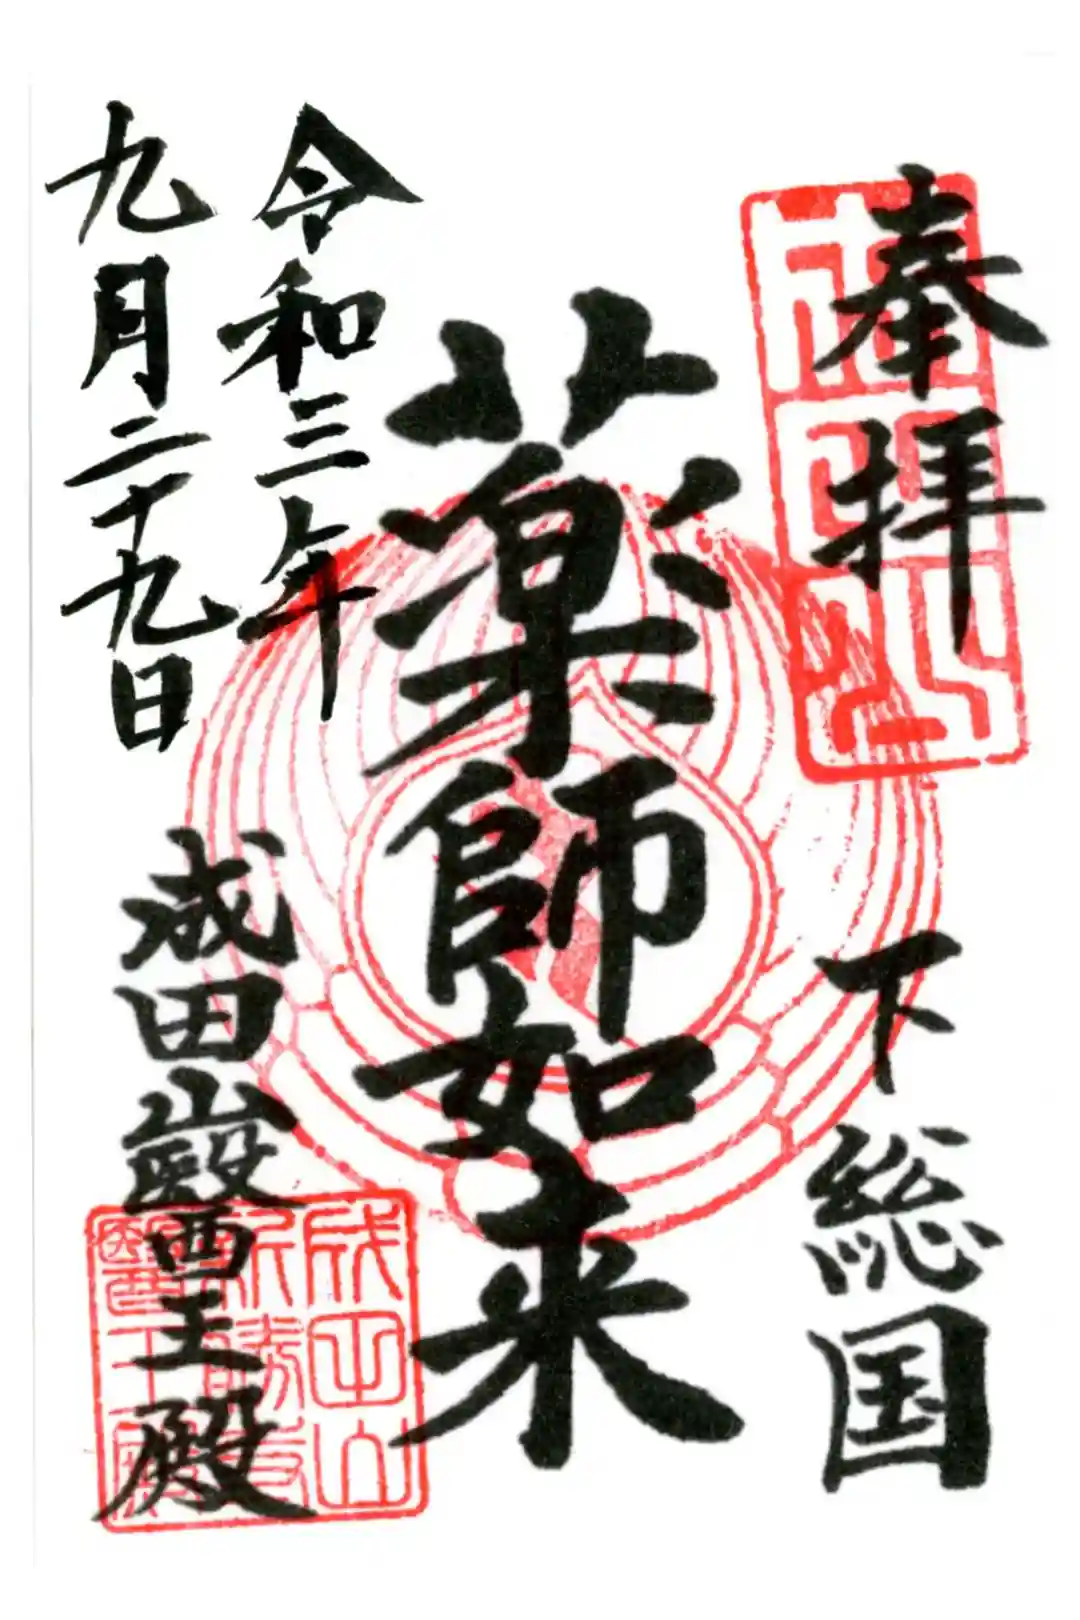 奉拝
下総国
薬師如来
令和三年
九月二十九日
成田山醫王殿
成田山
新勝寺
醫王殿